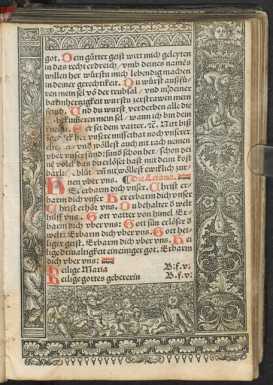 got. Dein gůtter geist wirt mich geleyten
in das recht erdtrich / vmb deines namēs
willen her würstu mich lebendig machen
in deiner gerechtikeit. Du würst außfü-
ren mein sel võ der trübsal / vnd in deiner
barmhertzigkeit würstu zerströwen mein
feynd. Und du würst verderben alle die
bekümmeren mein sel / wann ich bin dein
knecht. Eer sei dem vatter. ꝛc. Nit biß
her vnser missethat noch vnserer
vnd wöllest auch nit rach nemen
über vnser sünd schon her / schon dei
nē volck das du erlößet hast mit dein kost
blůt / vñ nit wöllest ewigklich zürnen
über vns. Die Letaney.
Herr erbarm dich vnser. Christ er-
barm dich vnser. Herr erbarm dich vnser
Christ erhör vns. Du behalter d' welt
hilff vns. Gott vatter von himel. Er-
barm dich vber vns. Gott sun erlöser d'
welt. Erbarm dich vber vns. Gott hei-
liger geist. Erbarm dich vber vns. Hei-
lige driualtigkeit ein einiger got. Erbarm
dich vber vns.
Heilige Maria B.f.v.
Heilige gottes gebererin B.f.v.